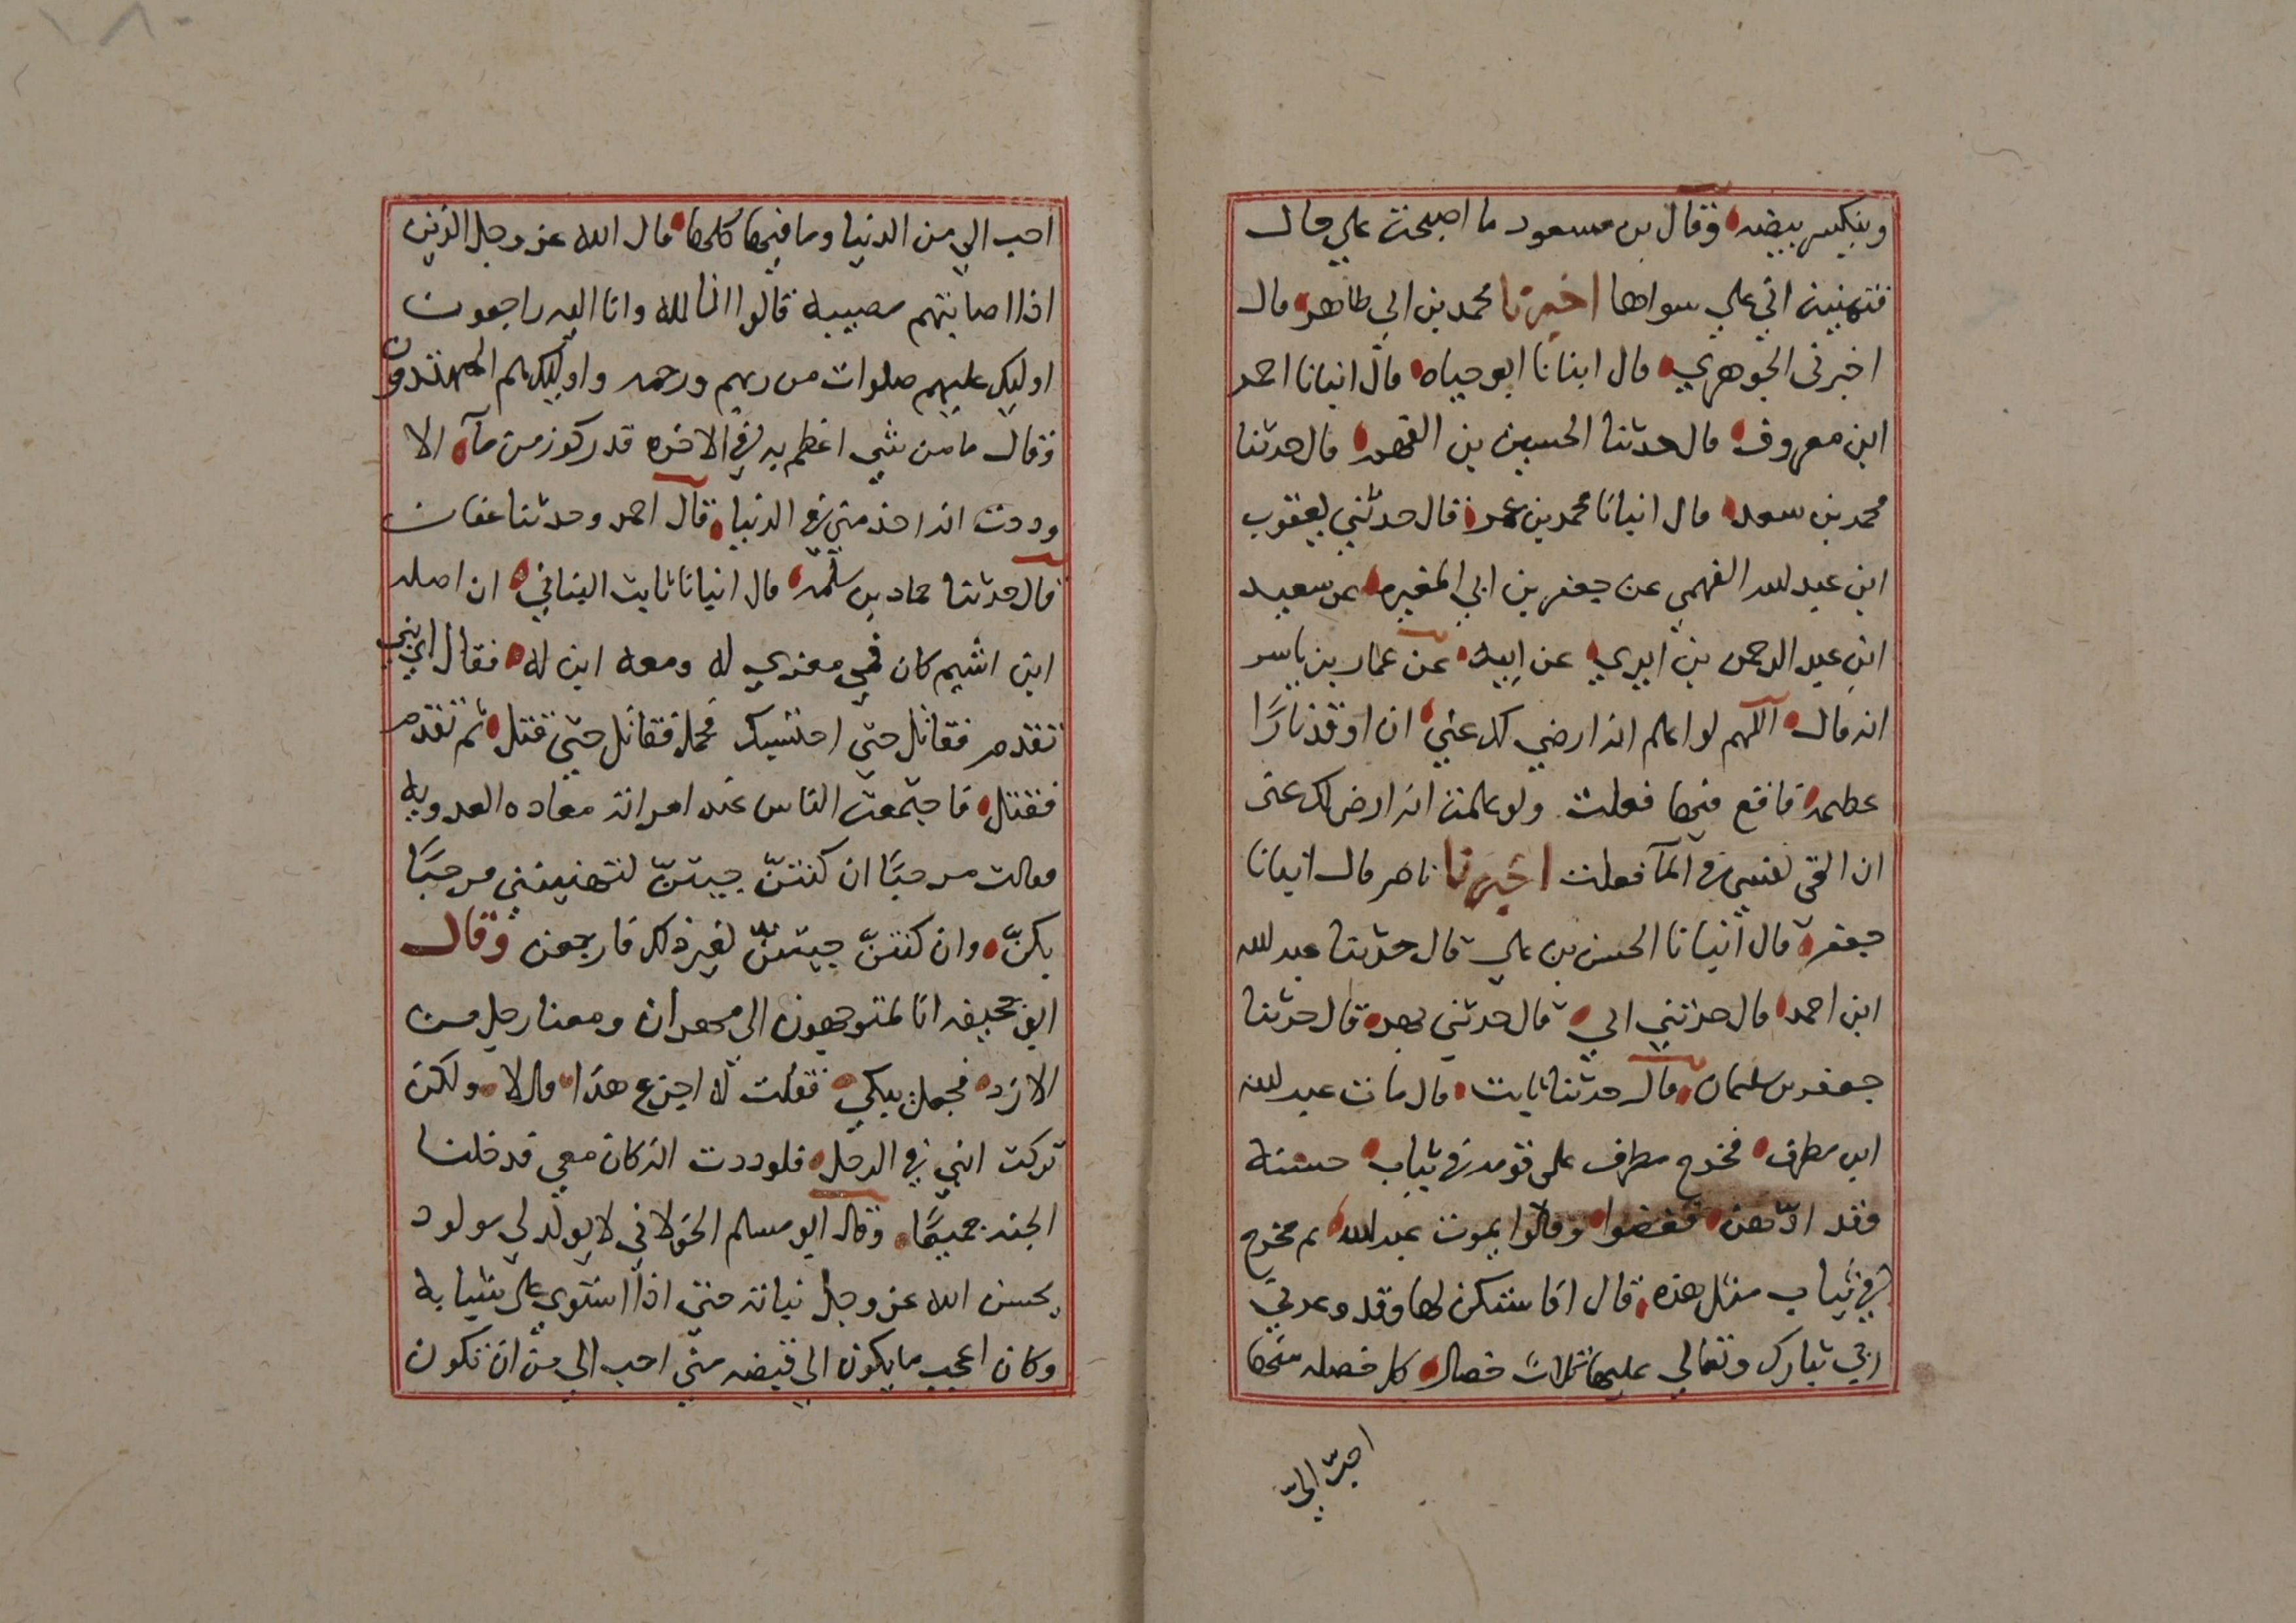 وينكسر بيضه وقال بن مسعود ما اصبحت علي حال
فتمنيت اني علي سواها اخبرنا محمد بن ابي طاهر قال
اخبرنى الجوهري قال ابنانا ابو حياه قال انبانا احمد
ابن معروف قال حدثنا الحسين بن الفهم قال حدثنا
محمد بن سعد قال انبانا محمد بن عمر قال حدثني يعقوب
ابن عبد الله القمي عن جعفر بن ابي المغيره عن سعيد
ابن عبد الرحمن بن ابزي عن ابيه عن عمار بن ياسر
انه قال اللهم لو اعلم انه ارضي لك عني ان اوقد نارًا
عظيمه فاقع فيها فعلت ولو علمت انه ارضى لك عنى
ان القى نفسي في المآ فعلت اخبرنا ناصر قال انبانا
جعفر قال انبانا الحسن بن علي قال حدثنا عبد الله
ابن احمد قال حدثني ابي قال حدثني بهز قال حدثنا
جعفر بن سليمان قال حدثنا ثابت قال مات عبد الله
ابن مطرف فخرج مطرف على قومه في ثياب حسنة
وقد ادّهن فغضبوا وقالوا يموت عبد الله ثم تخرج
في ثياب مثل هذه قال افاستكن لها وقد وعدني
ربي تبارك وتعالي عليها ثلاث خصال كل خصله منها
احبّ اليّ
احب الي من الدنيا وما فيها كلها قال الله عز وجل الذين
اذا اصابتهم مصيبة قالوا انا لله وانا اليه راجعون
اوليك عليهم صلوات من ربهم ورحمه واوليك هم المهتدون
وقال ما من شي اعظم به في الاخره قدر كوز من مآء الا
وددت انه اخذ مني في الدنيا قال احمد وحدثنا عفان
قال حدثنا حماد بن سلمه قال انبانا ثابت البناني ان اصله
ابن اشيم كان في مغزي له ومعه ابن له فقال اي بني
تقدم فقاتل حتي احتسبك فحمل فقاتل حتي قتل ثم تقدم
فقتل فاجتمعت الناس عند امراته معاده العدويه
فقالت مرحبًا ان كنتنّ جيتنّ لتهنيننى مرحبًا
بكنّ وان كنتنّ جيتنّ لغير ذلك فارجعن وقال
ابو جحيفه انا لمتوجهون الى مهران ومعنا رجل من
الازد فجعل يبكي فقلت له اجزع هذا قال لا ولكن
تركت ابني في الرحل فلوددت انه كان معي فدخلنا
الجنه جميعًا وقال ابو مسلم الخولاني لا يولد لي مولود
يحسن الله عز وجل نباته حتى اذا استوي على شبابه
وكان اعجب ما يكون الي قبضه مني احب الي من ان تكون